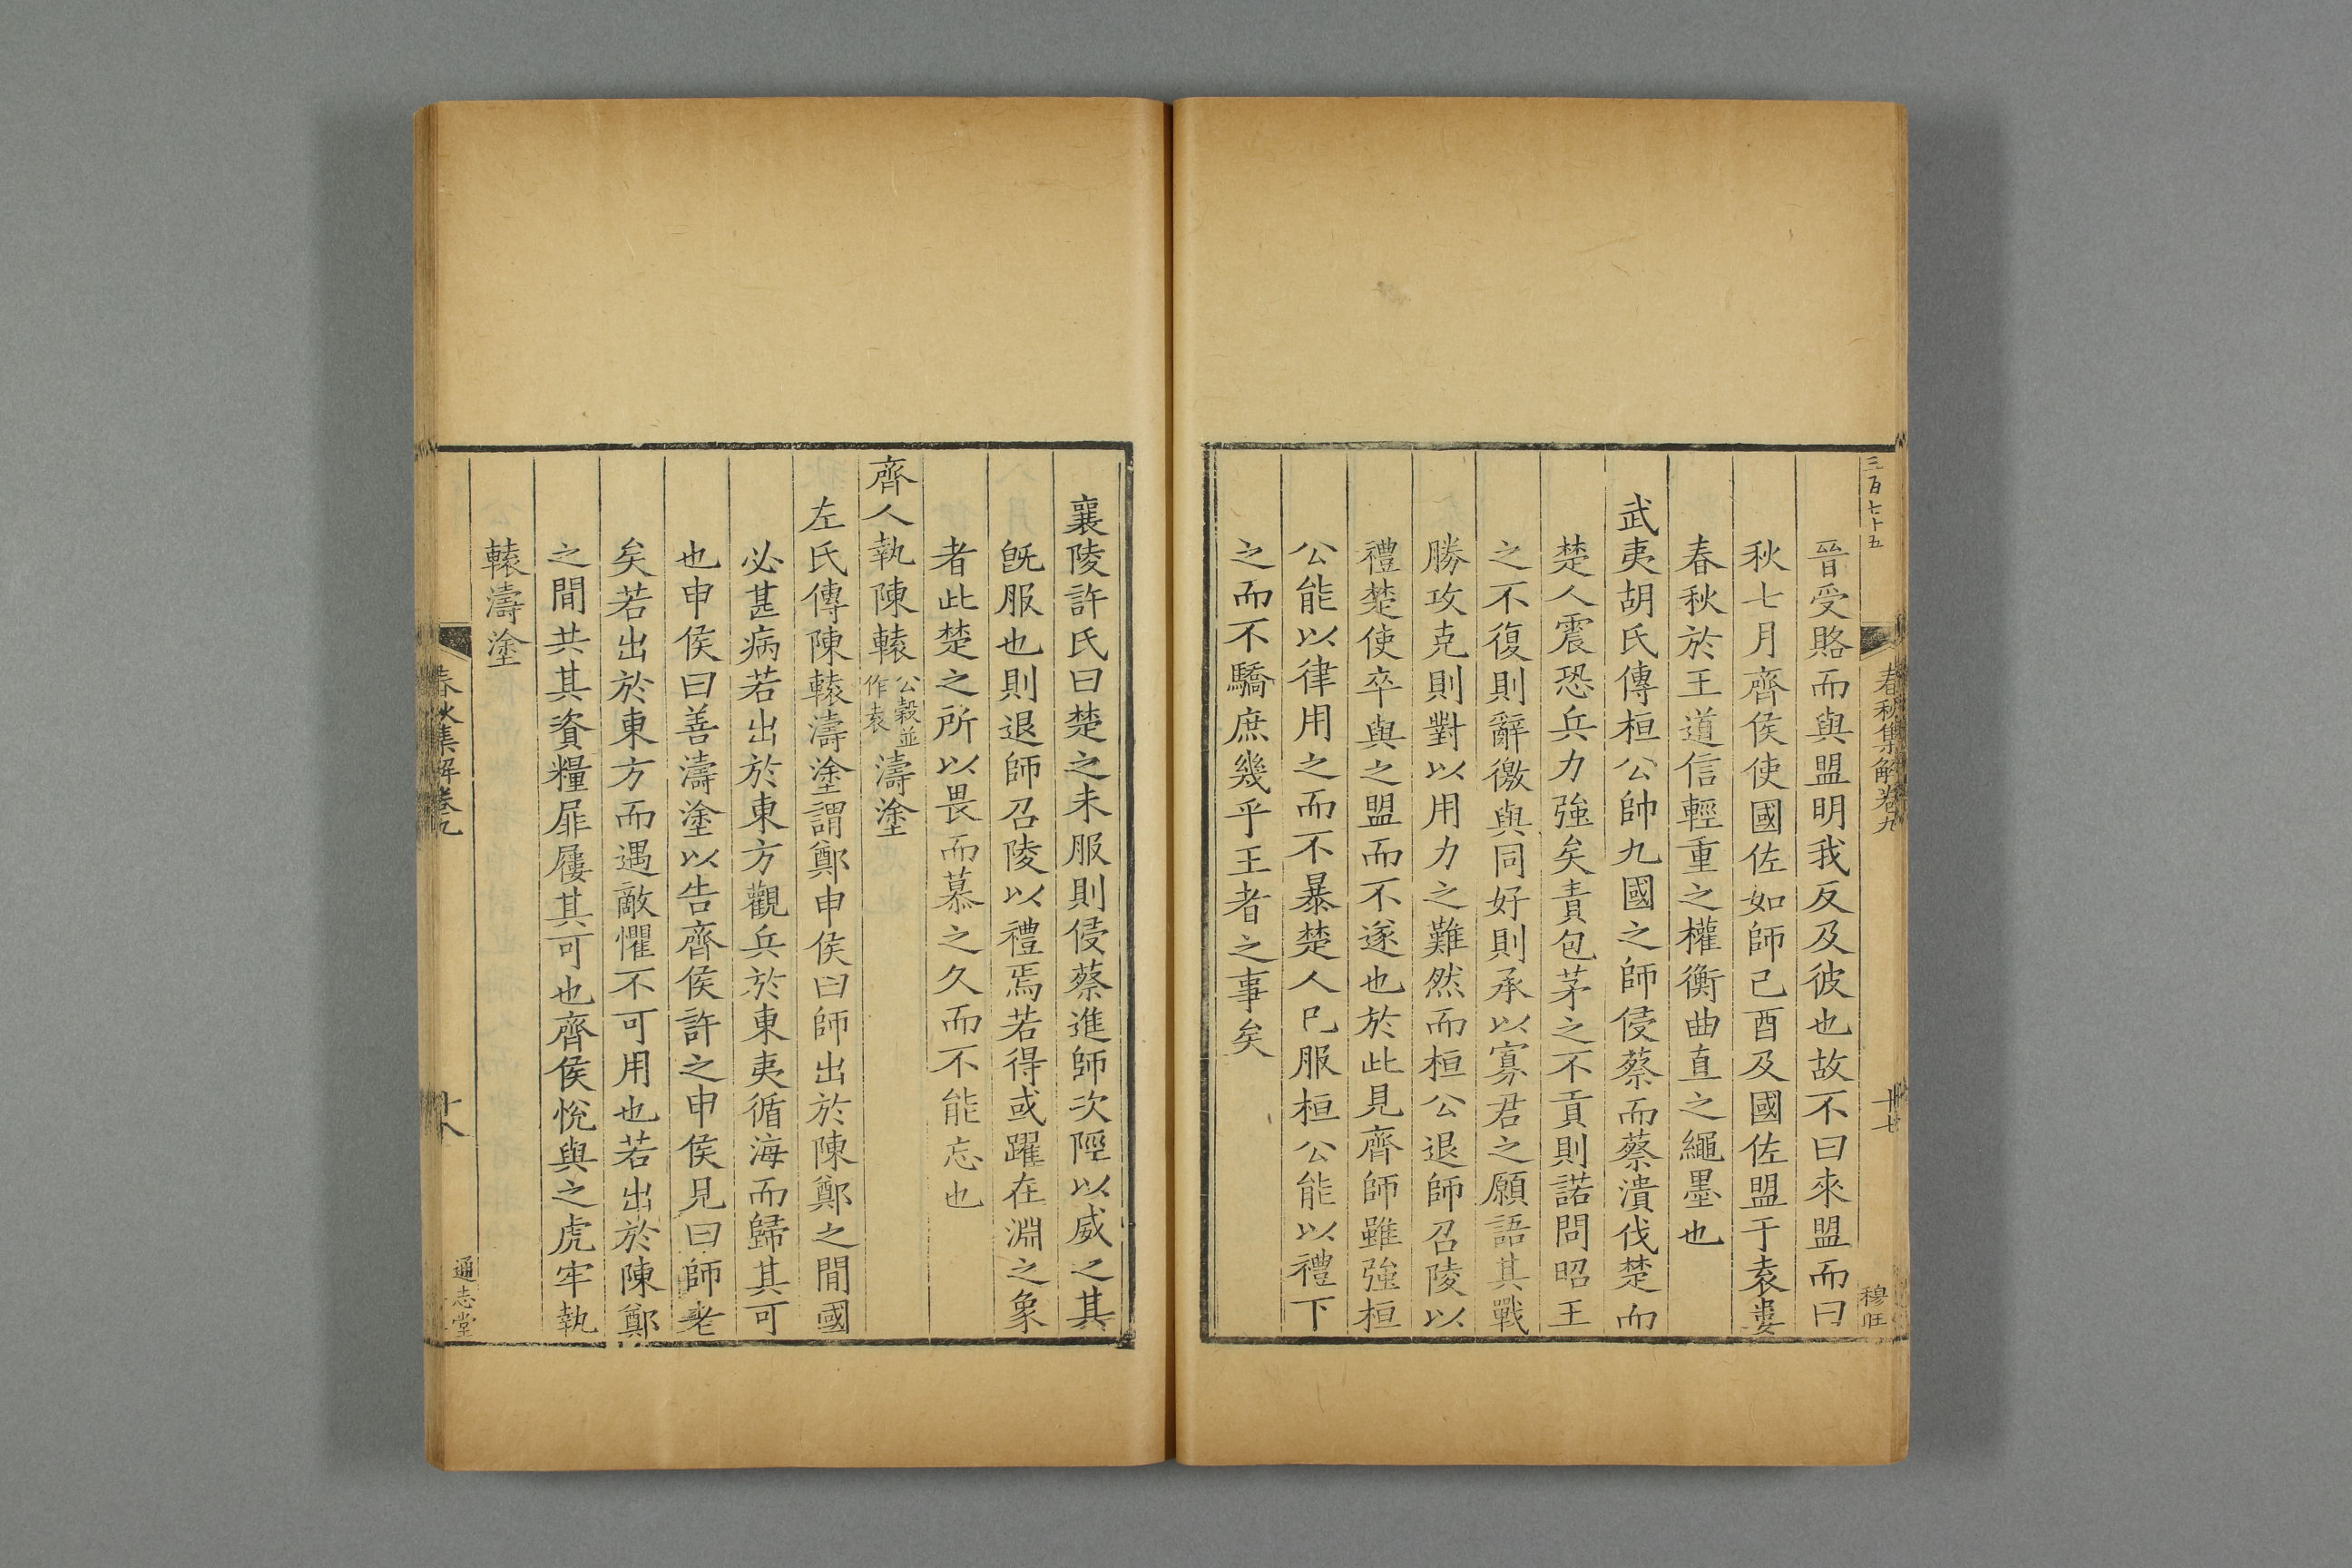 三百七十五
春秋集解卷九
十七
穆旺
晉受賂而與盟明我反及彼也故不曰來盟而曰
秋七月齊侯使國佐如師己酉及國佐盟于袁婁
春秋於王道信輕重之權衡曲直之繩墨也
武夷胡氏傳桓公帥九國之師侵蔡而蔡潰伐楚而
楚人震恐兵力強矣責包茅之不貢則諾問昭王
之不復則辭徼與同好則承以寡君之願語其戰
勝攻克則對以用力之難然而桓公退師召陵以
禮楚使卒與之盟而不遂也於此見齊師雖強桓
公能以律用之而不暴楚人已服桓公能以禮下
之而不驕庶幾乎王者之事矣
襄陵許氏曰楚之未服則侵蔡進師次陘以威之其
旣服也則退師召陵以禮焉若得或躍在淵之象
者此楚之所以畏而慕之久而不能忘也
齊人執陳轅公穀並作袁濤塗
左氏傳陳轅濤塗謂鄭申侯曰師出於陳鄭之閒國
必甚病若出於東方觀兵於東夷循海而歸其可
也申侯曰善濤塗以告齊侯許之申侯見曰師老
矣若出於東方而遇敵懼不可用也若出於陳鄭
之閒共其資糧屝屨其可也齊侯悅與之虎牢執
轅濤塗
春秋集解卷九
十八
通志堂